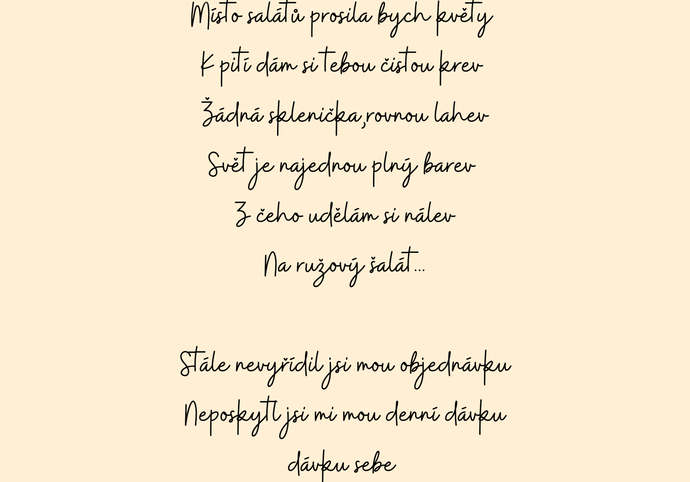 Místo salátů prosila bych květy
K pití dám si tebou čistou krev
Žádná sklenička,rovnou lahev
Svět je najednou plný barev
Z čeho udělám si nálev
Na ružový šalát...
Stále nevyřídil jsi mou objednávku
Neposkytl jsi mi mou denní dávku
dávku sebe